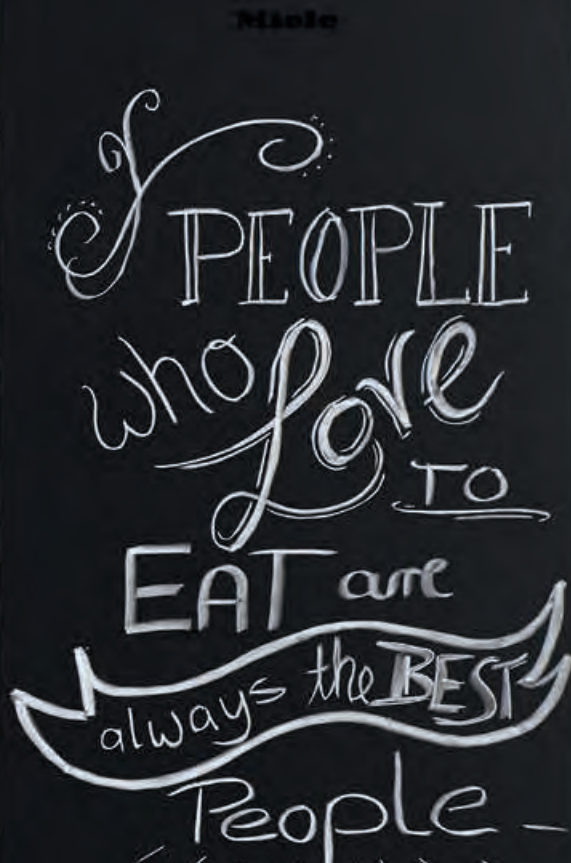 Miele
PEOPLE
who Love
TO
EAT are
always the BEST
People -